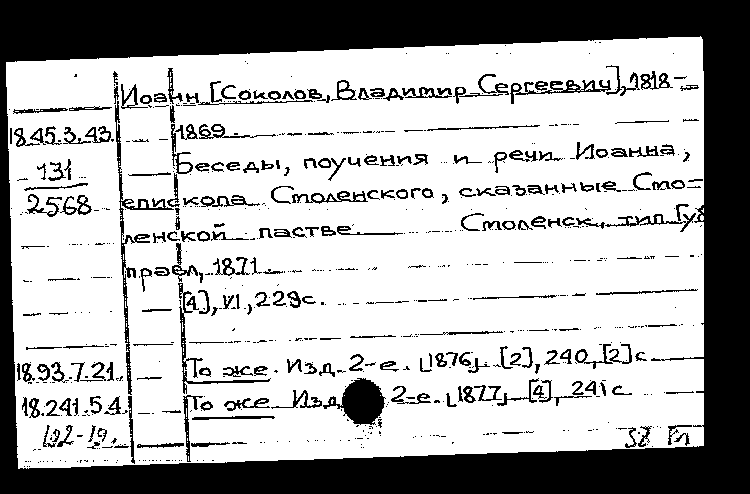 Иоанн [Соколов, Владимир Сергеевич], 1818-
18.45.3.43. 1869.
131 Беседы, поучения и речи Иоанна,
2568 епископа Смоленского, сказанные Смо=
ленской пастве. Смоленск, тип. Губ
правл, 1871.
[4], VI, 229с.
18.93.7.21. То же. Изд. 2-е. [1876]. [2], 240, [2] с
18.241.5.4. То же Изд 2-е. [1877] [4], 241 с